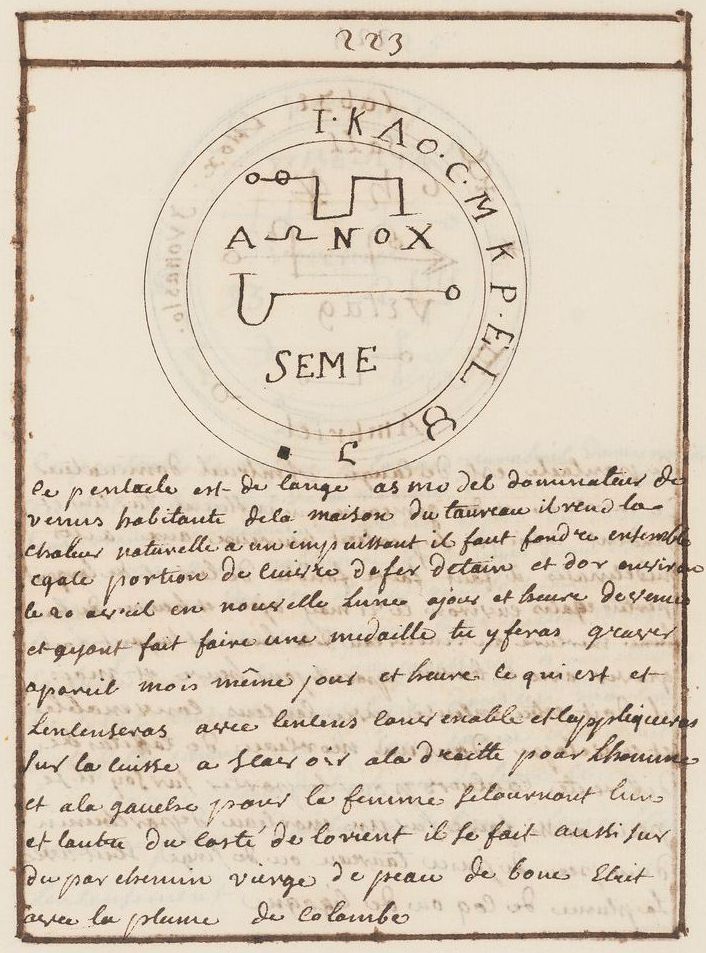 223
I·KΛO·C·MKP·EL
A Ω NOX
SEME
Ce pentacle est de lange asmodel dominateur de
venus habitante dela maison du taureau il rend la
chaleur naturelle a un impuissant il faut fondre ensemble
egale portion de cuivre de fer detain et dor environ
le 20 avril en nouvelle Lune a jour et heure de venus
et ayant fait faire une medaille tu y feras graver
apareil mois même jour et heure ce qui est et
Lencenseras avec lencens convenable et lappliqueras
sur la cuisse a scavoir ala droitte pour Lhomme
et ala gauche pour la femme se tournant lun
et lautre du costé de lorient il se fait aussi sur
du parchemin vierge de peau de bouc Ecrit
avec la plume de Colombe